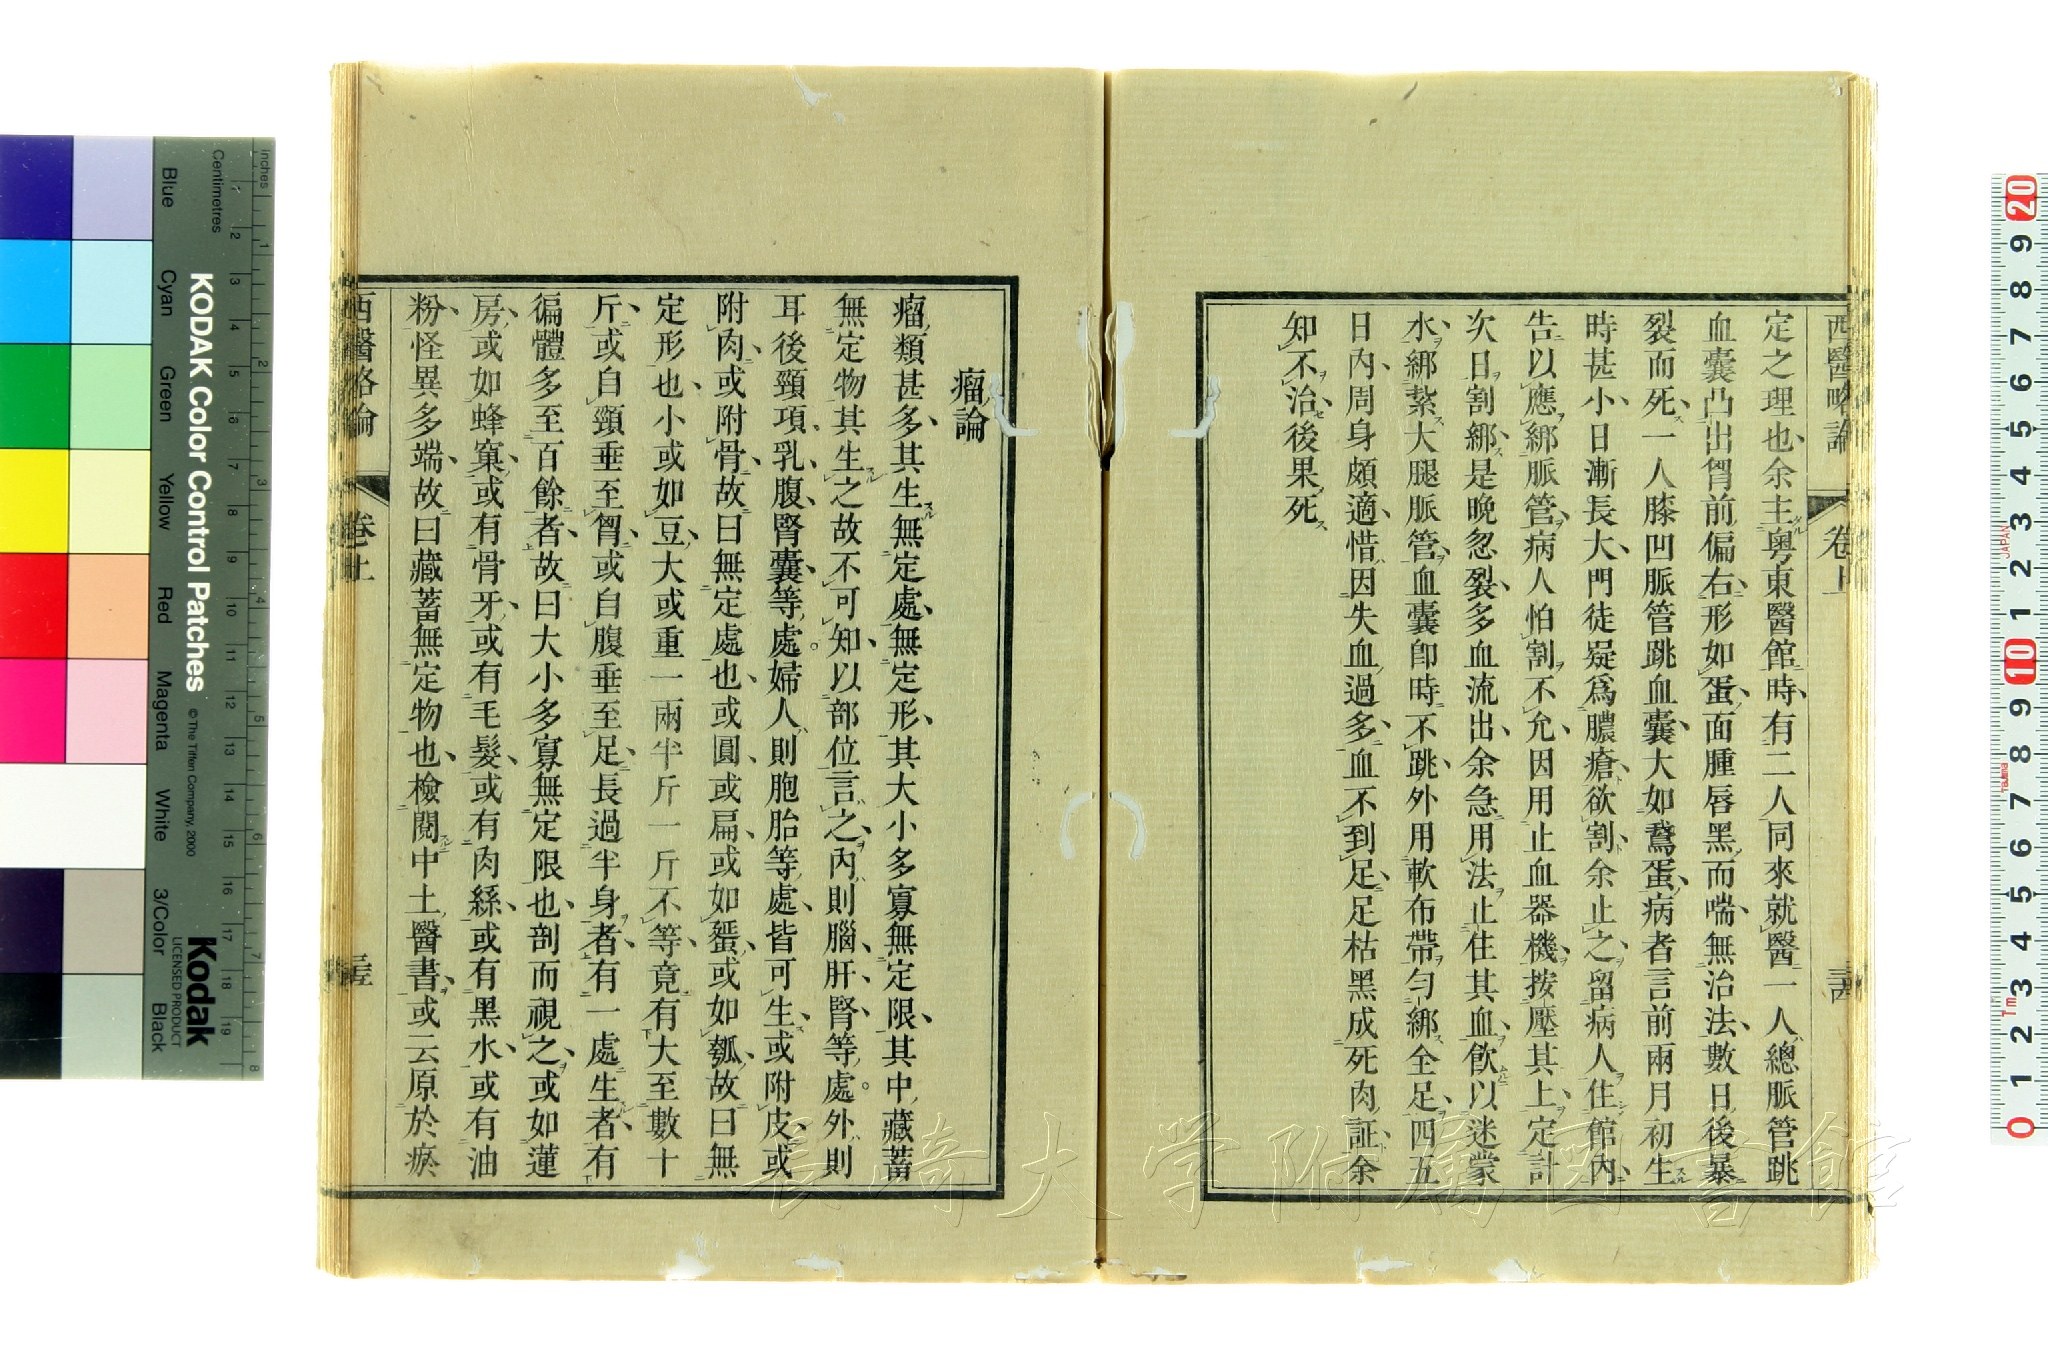 西醫略論 卷上
定之理也余主粵東醫館時有二人同來就醫一人總脈管跳
血囊凸出胷前偏右形如蛋面腫唇黑而喘無治法數日後暴
裂而死一人膝凹脈管跳血囊大如鵞蛋病者言前兩月初生
時甚小日漸長大門徒疑爲膿瘡欲割余止之留病人住館內
告以應綁脈管病人怕割不允因用止血器機按壓其上定計
次日割綁是晚忽裂多血流出余急用法止住其血飮以迷蒙
水綁紮大腿脈管血囊卽時不跳外用軟布帶匀綁全足四五
日內周身頗適惜因失血過多血不到足足枯黑成死肉証余
知不治後果死
瘤論
瘤類甚多其生無定處無定形其大小多寡無定限其中藏蓄
無定物其生之故不可知以部位言之內則腦肝腎等處。外則
耳後頸項乳腹腎囊等處。婦人則胞胎等處皆可生或附皮或
附肉或附骨故曰無定處也或圓或扁或如蜑或如瓠故曰無
定形也小或如豆大或重一兩半斤一斤不等竟有大至數十
斤或自頸垂至胷或自腹垂至足長過半身者有一處生者有
徧體多至百餘者故曰大小多寡無定限也剖而視之或如蓮
房或如蜂窠或有骨牙或有毛髮或有肉絲或有黑水或有油
粉怪異多端故曰藏蓄無定物也檢閱中土醫書或云原於瘀
西醫略論 卷上
長崎大学附属図書館
KODAK Color Control Patches
© The Tiffen Company, 2000
Kodak
LICENSED PRODUCT
Blue Cyan Green Yellow Red Magenta White 3/Color Black
Inches 1 2 3 4 5 6 7 8
Centimetres 2 3 4 5 6 7 8 9 10 11 12 13 14 15 16 17 18 19
20 9 8 7 6 5 4 3 2 1 10 9 8 7 6 5 4 3 2 1 0
JAPAN